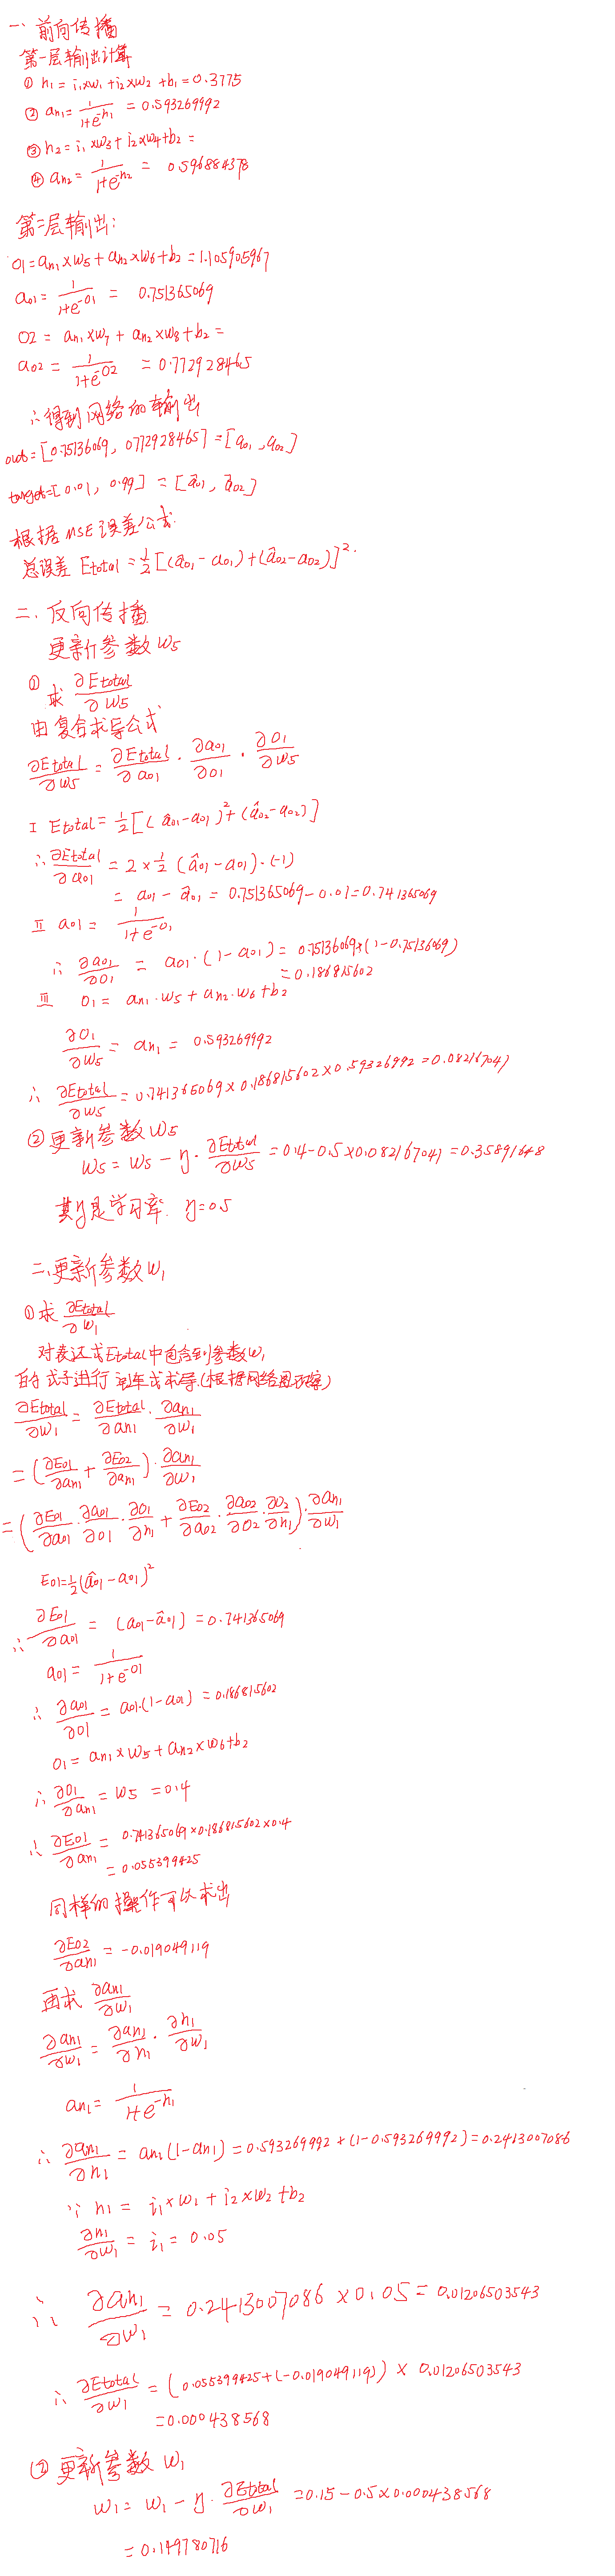 一、前向传播
第一层输出计算
① h₁ = i₁×w₁ + i₂×w₂ + b₁ = 0.3775
② an₁ = 1/(1+e^-h₁) = 0.593269992
③ h₂ = i₁×w₃ + i₂×w₄ + b₂ =
④ an₂ = 1/(1+e^-h₂) = 0.596884378
第二层输出:
o1 = an₁×w₅ + an₂×w₆ + b₂ = 1.105905967
ao1 = 1/(1+e^-o1) = 0.751365069
o2 = an₁×w₇ + an₂×w₈ + b₂ =
ao2 = 1/(1+e^-o2) = 0.772928465
∴得到网络的输出
out = [0.75136069, 0.772928465] = [ao1, ao2]
target = [0.01, 0.99] = [âo1, âo2]
根据MSE误差公式
总误差 Etotal = 1/2[(âo1 - ao1) + (âo2 - ao2)]².
二、反向传播
更新参数w5
① 求 ∂Etotal/∂w5
由复合求导公式
∂Etotal/∂w5 = ∂Etotal/∂ao1 · ∂ao1/∂o1 · ∂o1/∂w5
I Etotal = 1/2[(âo1 - ao1)² + (âo2 - ao2)]
∴ ∂Etotal/∂ao1 = 2 × 1/2 (âo1 - ao1)·(-1)
= ao1 - âo1 = 0.751365069 - 0.01 = 0.741365069
II ao1 = 1/(1+e^-o1)
∴ ∂ao1/∂o1 = ao1·(1-ao1) = 0.75136069×(1-0.75136069)
= 0.186815602
III o1 = an₁·w5 + an₂·w6 + b₂
∂o1/∂w5 = an₁ = 0.593269992
∴ ∂Etotal/∂w5 = 0.741365069 × 0.186815602 × 0.59326992 = 0.082167041
② 更新参数w5
w5 = w5 - η·∂Etotal/∂w5 = 0.4 - 0.5×0.082167041 = 0.35891648
其η是学习率. η=0.5
二、更新参数w₁
① 求 ∂Etotal/∂w₁
对表达式Etotal中包含到参数w₁
的式子进行链式求导.(根据网络图)
∂Etotal/∂w₁ = ∂Etotal/∂an₁ · ∂an₁/∂w₁
= (∂Eo1/∂an₁ + ∂Eo2/∂an₁)·∂an₁/∂w₁
= (∂Eo1/∂ao1 · ∂ao1/∂o1 · ∂o1/∂h₁ + ∂Eo2/∂ao2 · ∂ao2/∂o2 · ∂o2/∂h₁)·∂an₁/∂w₁
Eo1 = 1/2(âo1 - ao1)²
∴ ∂Eo1/∂ao1 = (ao1 - âo1) = 0.741365069
ao1 = 1/(1+e^-o1)
∴ ∂ao1/∂o1 = ao1·(1-ao1) = 0.186815602
o1 = an₁×w5 + an₂×w6 + b₂
∴ ∂o1/∂an₁ = w5 = 0.4
∴ ∂Eo1/∂an₁ = 0.741365069×0.186815602×0.4
= 0.055399425
同样的操作可以求出
∂Eo2/∂an₁ = -0.019049119
再求 ∂an₁/∂w₁
∂an₁/∂w₁ = ∂an₁/∂h₁ · ∂h₁/∂w₁
an₁ = 1/(1+e^-h₁)
∴ ∂an₁/∂h₁ = an₁(1-an₁) = 0.593269992×(1-0.593269992) = 0.2413007086
∵ h₁ = i₁×w₁ + i₂×w₂ + b₂
∂h₁/∂w₁ = i₁ = 0.05
∴ ∂an₁/∂w₁ = 0.2413007086 × 0.05 = 0.01206503543
∴ ∂Etotal/∂w₁ = (0.055399425+(-0.019049119)) × 0.01206503543
= 0.000438568
② 更新参数w₁
w₁ = w₁ - η·∂Etotal/∂w₁ = 0.15 - 0.5×0.000438568
= 0.149780716